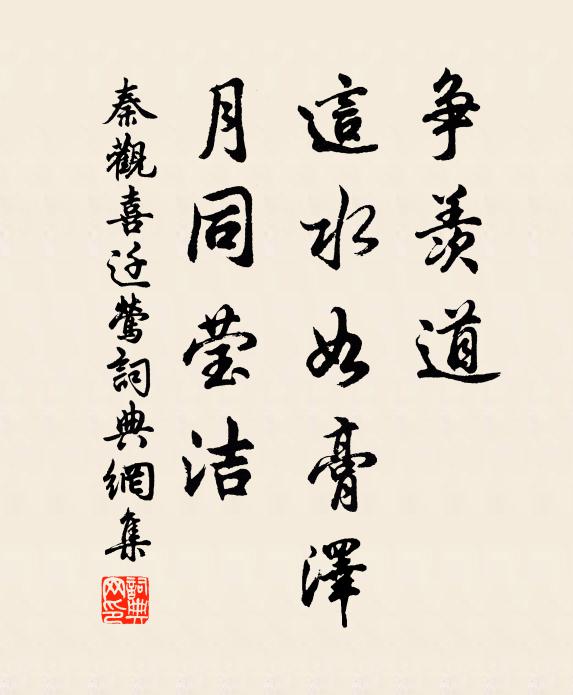 争羨道
這水如膏澤
月同莹洁
秦觀喜迁鶯詞典網集
詞典網印